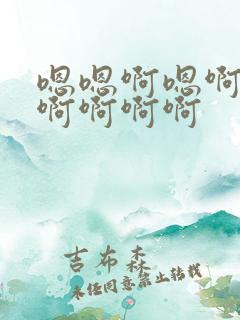 嗯嗯啊嗯啊
啊啊啊啊
吉布森
未经同意禁止转载